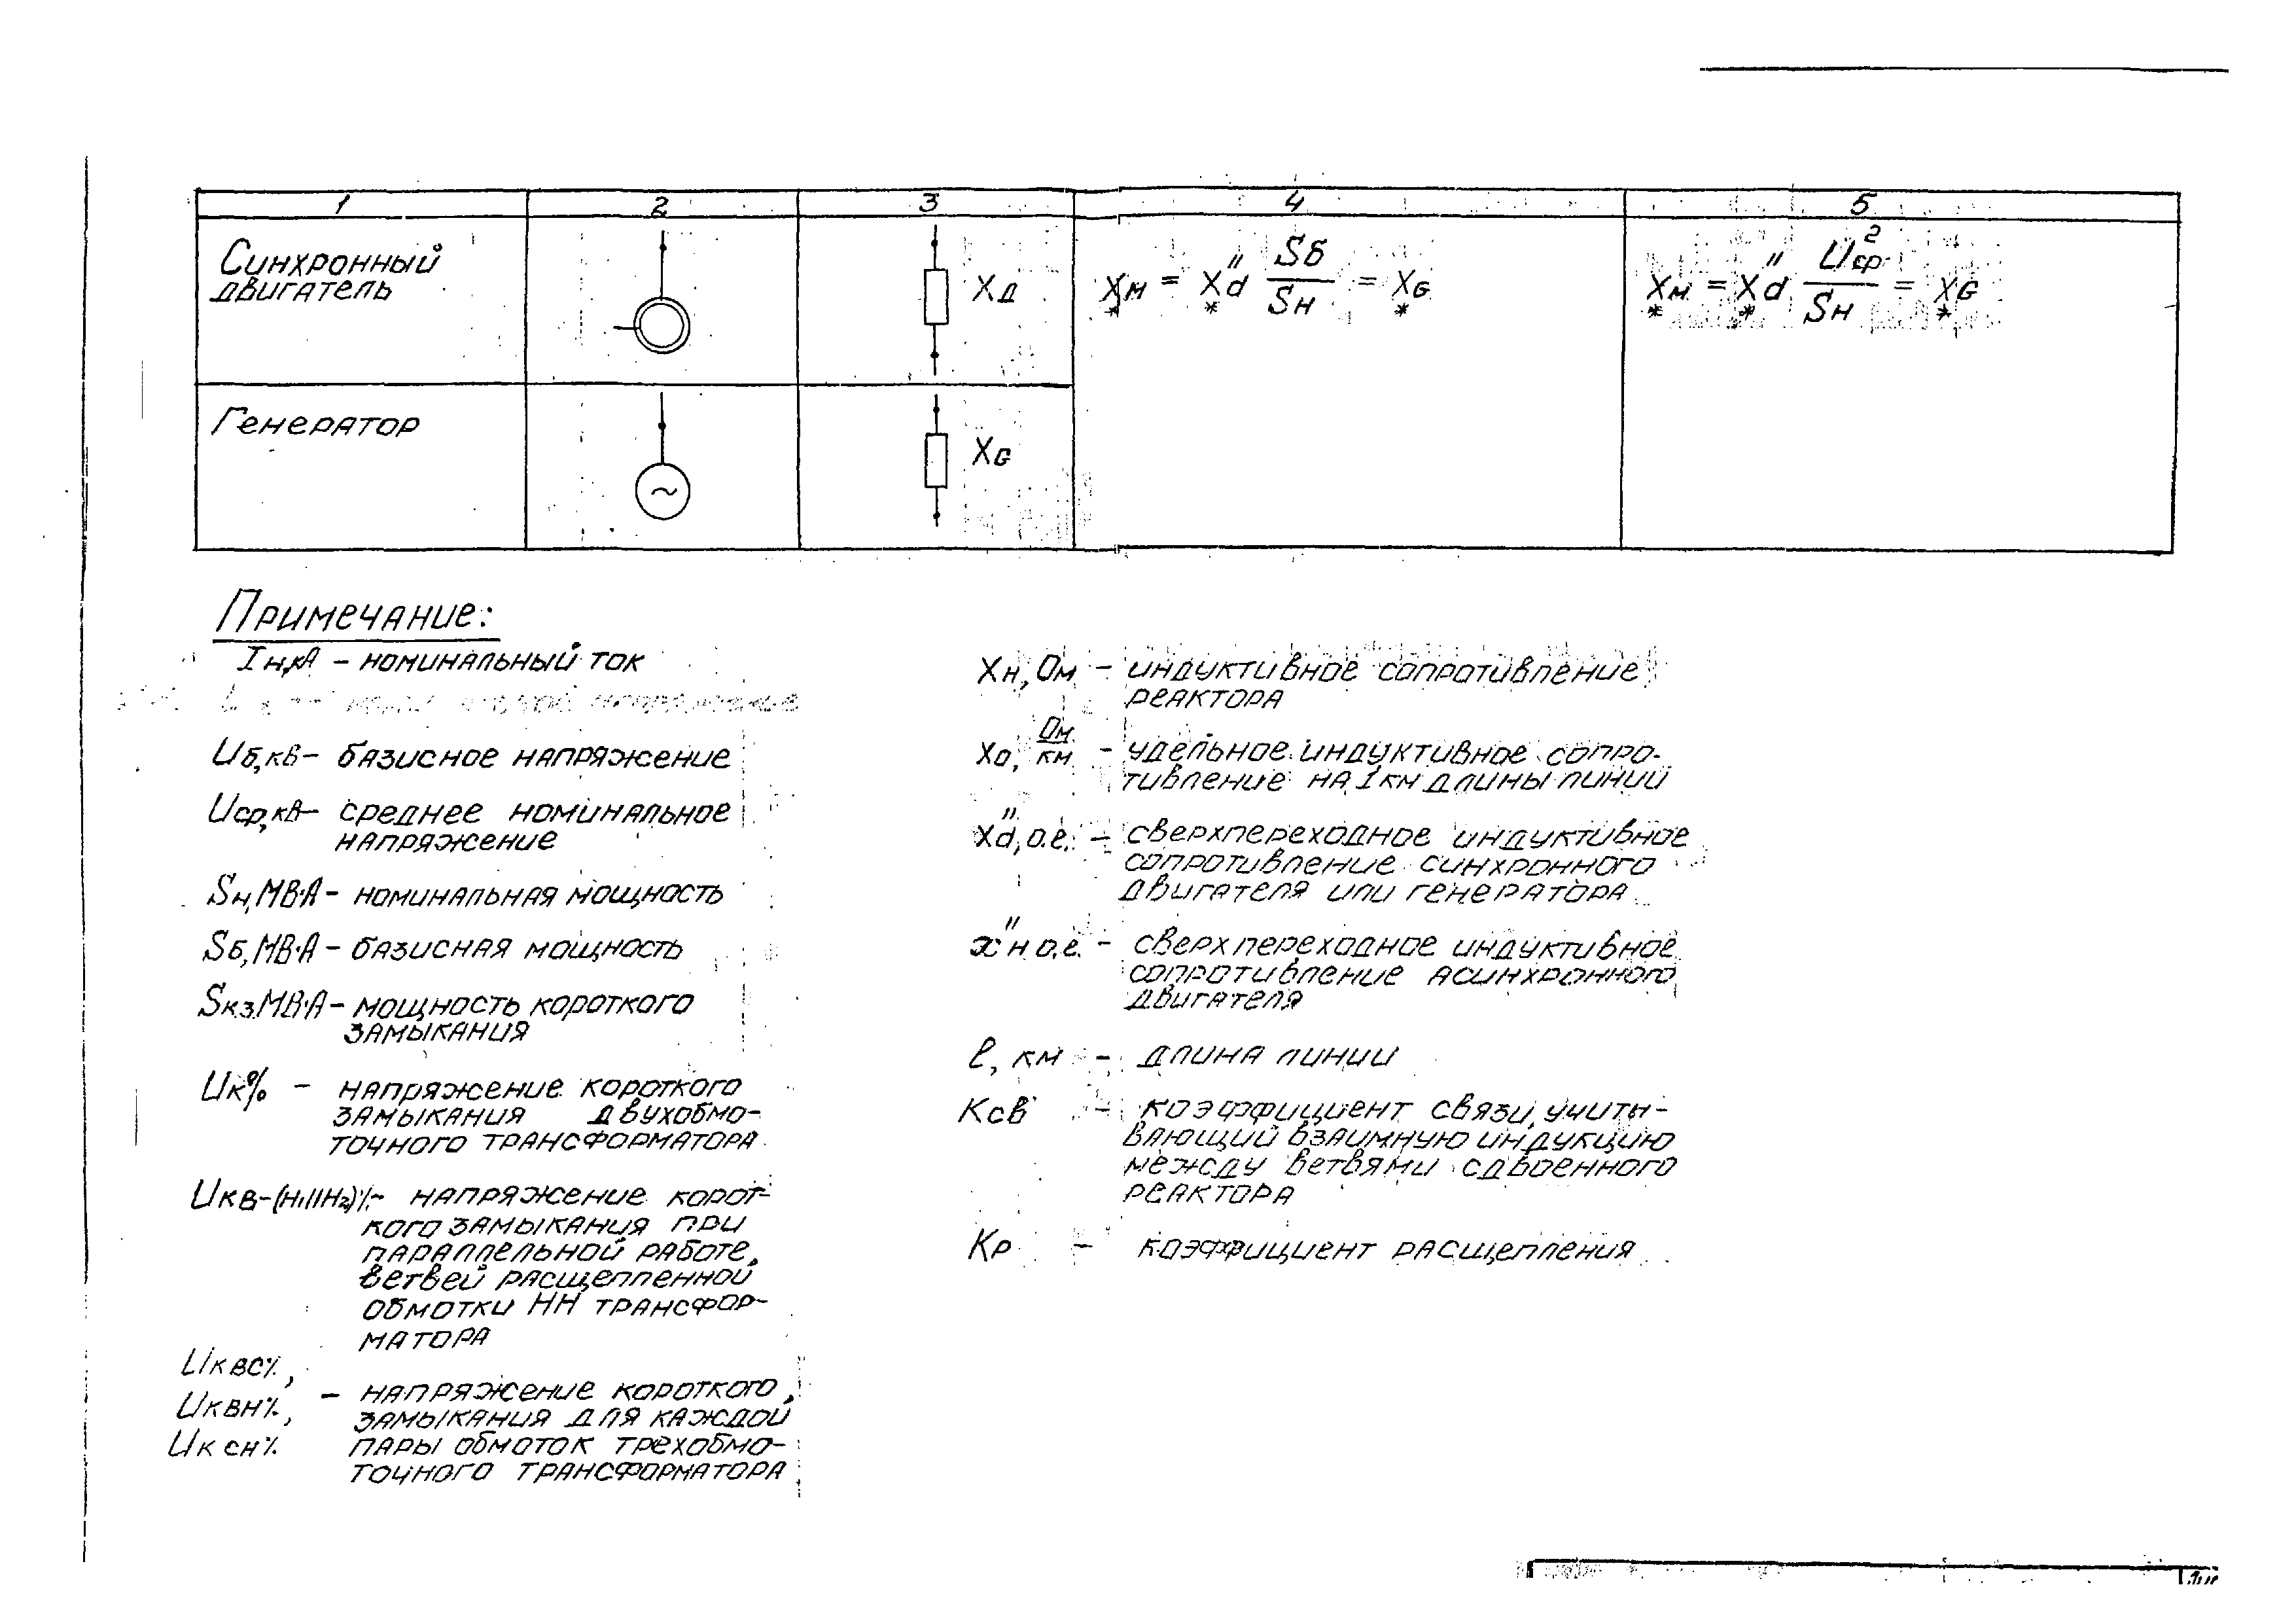 1 2 3 4 5
Синхронный
двигатель
Xд
X*м = X*d" Sб/Sн = X*G
X*м = X*d" U²ср/Sн = X*G
Генератор
XG
Примечание:
Iн,кА – номинальный ток
Uб,кв – базисное напряжение
Uср,кв – среднее номинальное
напряжение
Sн,МВ·А – номинальная мощность
Sб,МВ·А – базисная мощность
Sкз.МВ·А – мощность короткого
замыкания
Uк% – напряжение короткого
замыкания двухобмо-
точного трансформатора
Uкв-(Н1IIН2)% – напряжение корот-
кого замыкания при
параллельной работе
ветвей расщепленной
обмотки НН трансфор-
матора
Uквс%,
Uквн%, – напряжение короткого
замыкания для каждой
Uксн% пары обмоток трехобмо-
точного трансформатора
Xн, Ом – индуктивное сопротивление
реактора
Xо, Ом/км – удельное индуктивное сопро-
тивление на 1км длины линий
X"d, о.е. – сверхпереходное индуктивное
сопротивление синхронного
двигателя или генератора
x"н о.е. – сверхпереходное индуктивное
сопротивление асинхронного
двигателя
ℓ, км – длина линии
Kсв – коэффициент связи, учиты-
вающий взаимную индукцию
между ветвями сдвоенного
реактора
Kр – коэффициент расщепления